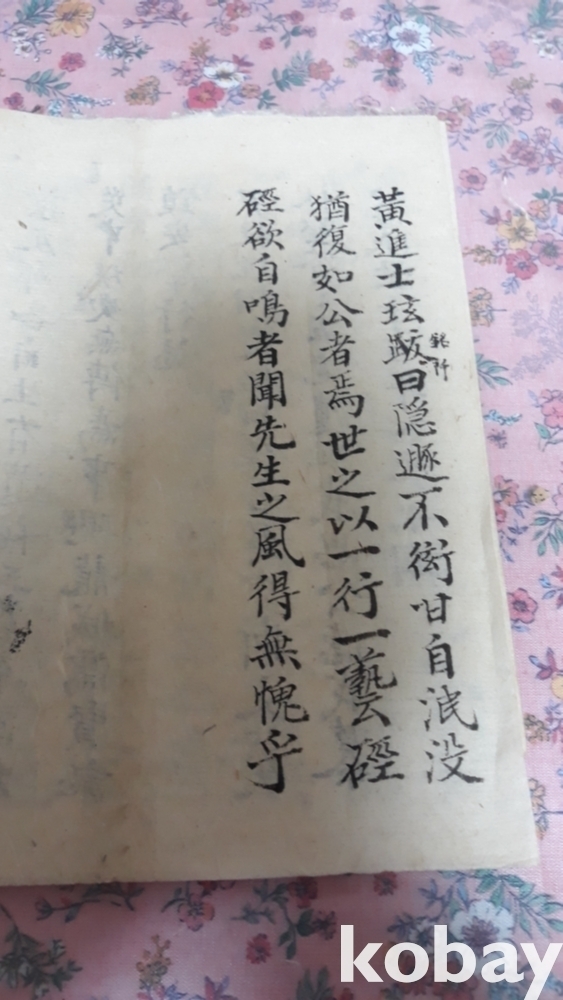 黃進士玹跋曰隐遯不衒甘自泯没
猶復如公者焉世之以一行一藝云硜
硜欲自鳴者聞先生之風得無愧乎
kobay